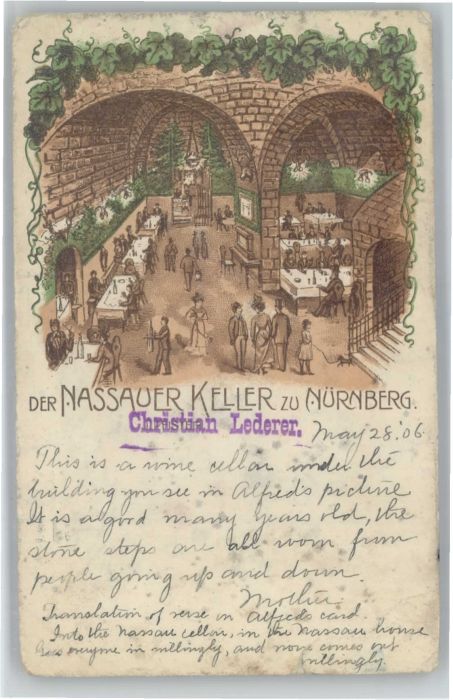 DER NASSAUER KELLER ZU NÜRNBERG.
Christian Lederer.
May 28 '06
This is a wine cellar under the
building you see in Alfred's picture
It is a good many years old, the
stone steps are all worn from
people going up and down.
Mother.
Translation of verse on Alfred's card.
Into the Nassau cellar, in the Nassau house
Goes everyone in willingly, and none comes out
willingly.